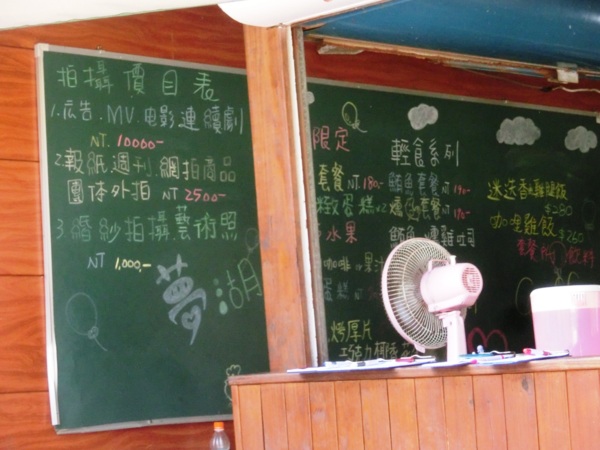 拍攝價目表
1.広告.MV.电影連續劇
NT. 10000-
2.報紙週刊.網拍商品
團体外拍 NT 2500-
3.婚紗拍攝藝術照
NT 1,000-
夢湖
限定
套餐 NT.180-
水果
咖啡 果汁
蛋糕
烤厚片
輕食系列
鮪魚套餐 NT 190-
燻雞套餐 NT 170-
鮪魚.燻雞吐司
迷迭香雞腿飯
$280
咖哩雞飯
$260